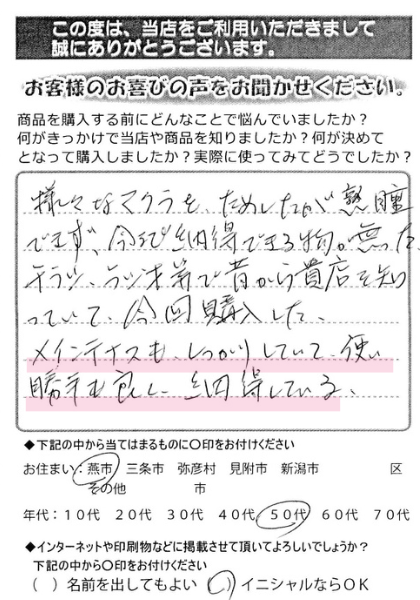 この度は、当店をご利用いただきまして
誠にありがとうございます。
お客様のお喜びの声をお聞かせください。
商品を購入する前にどんなことで悩んでいましたか？
何がきっかけで当店や商品を知りましたか？何が決めて
となって購入しましたか？実際に使ってみてどうでしたか？
様々なマクラを、ためしたが熟睡
できず、今まで納得できる物が無った
チラシ、ラジオ等で昔から貴店を知
っていて、今回購入した、
メインテナスも、しっかりしていて、使い
勝手も良く、納得している、
◆下記の中から当てはまるものに○印をお付けください
お住まい：燕市 三条市 弥彦村 見附市 新潟市 区
その他 市
年代：１０代 ２０代 ３０代 ４０代 ５０代 ６０代 ７０代
◆インターネットや印刷物などに掲載させて頂いてよろしいでしょうか？
下記の中から○印をお付けください
（ ）名前を出してもよい （○）イニシャルならＯＫ